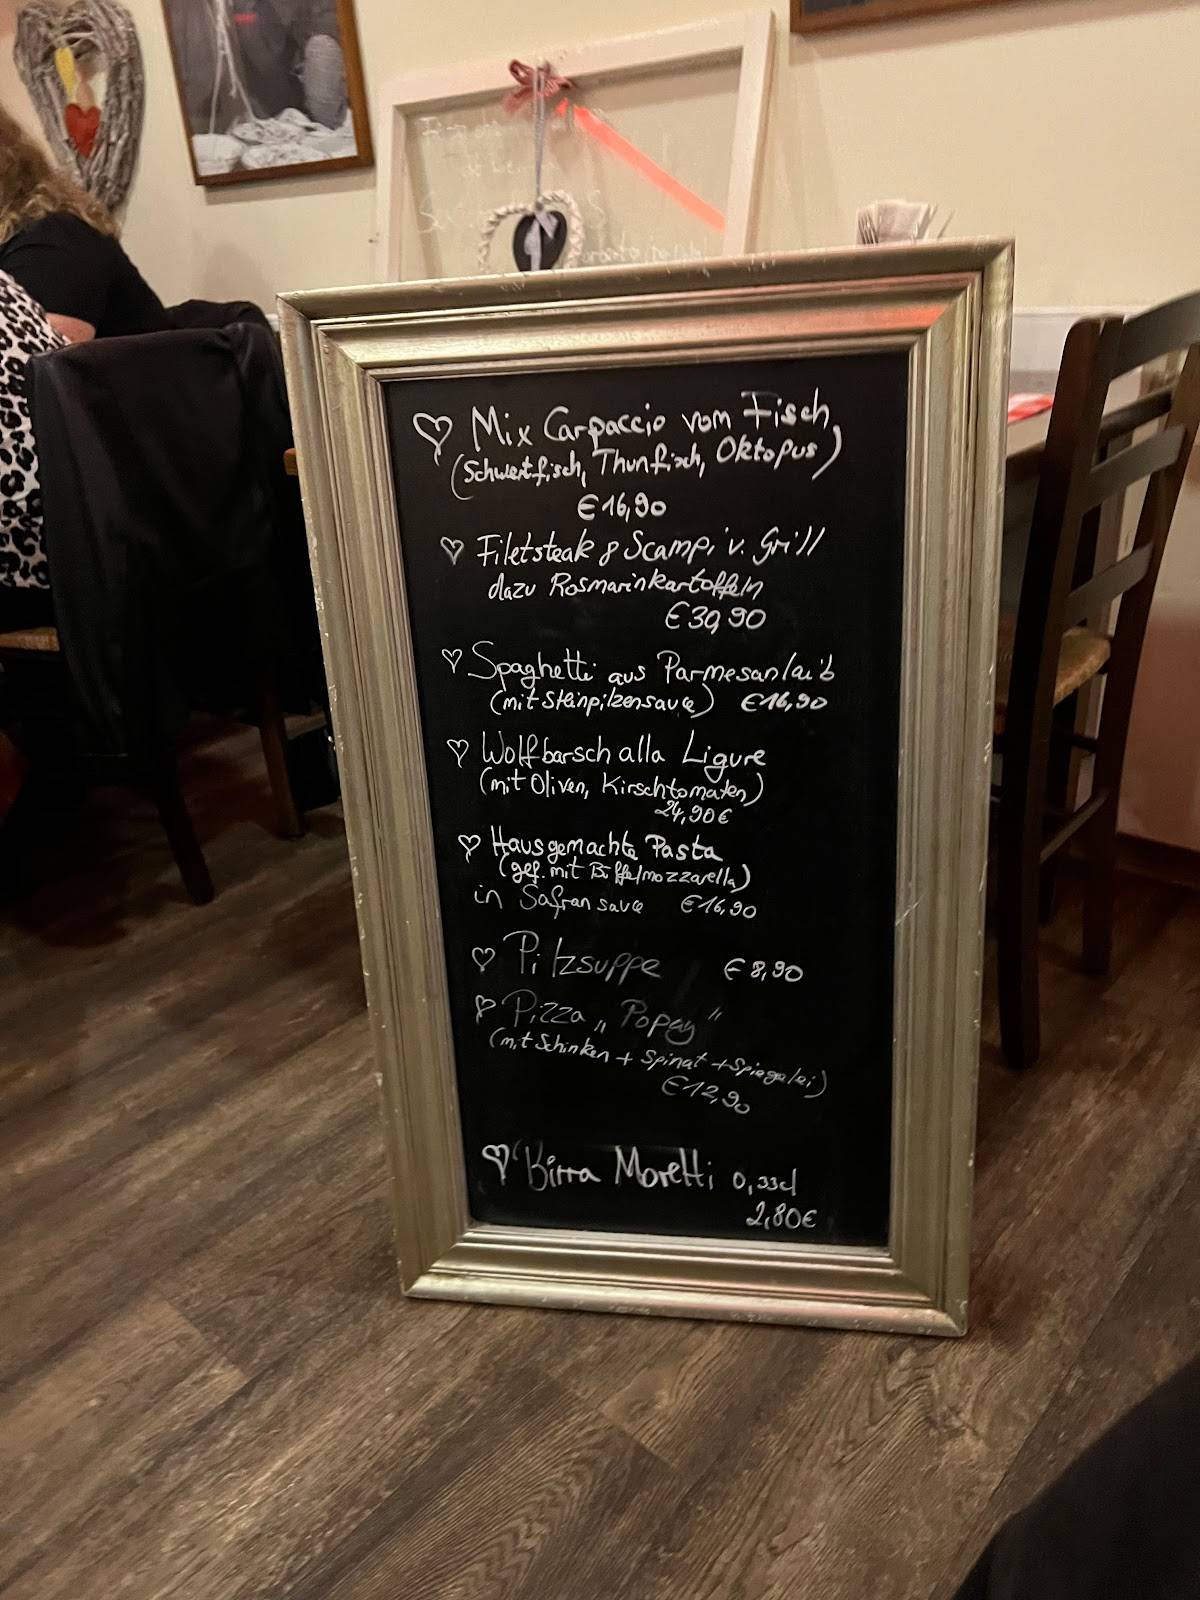 Mix Carpaccio vom Fisch
(Schwertfisch, Thunfisch, Oktopus)
€ 16,90
Filetsteak & Scampi v. Grill
dazu Rosmarinkartoffeln
€ 39,90
Spaghetti aus Parmesanlaib
(mit Steinpilzensauce) € 16,90
Wolfbarsch alla Ligure
(mit Oliven, Kirschtomaten)
24,90 €
Hausgemachte Pasta
(gef. mit Büffelmozzarella)
in Safransauce € 16,90
Pilzsuppe € 8,90
Pizza „Popey"
(mit Schinken + Spinat + Spiegelei)
€ 12,90
Birra Moretti 0,33cl
2,80 €